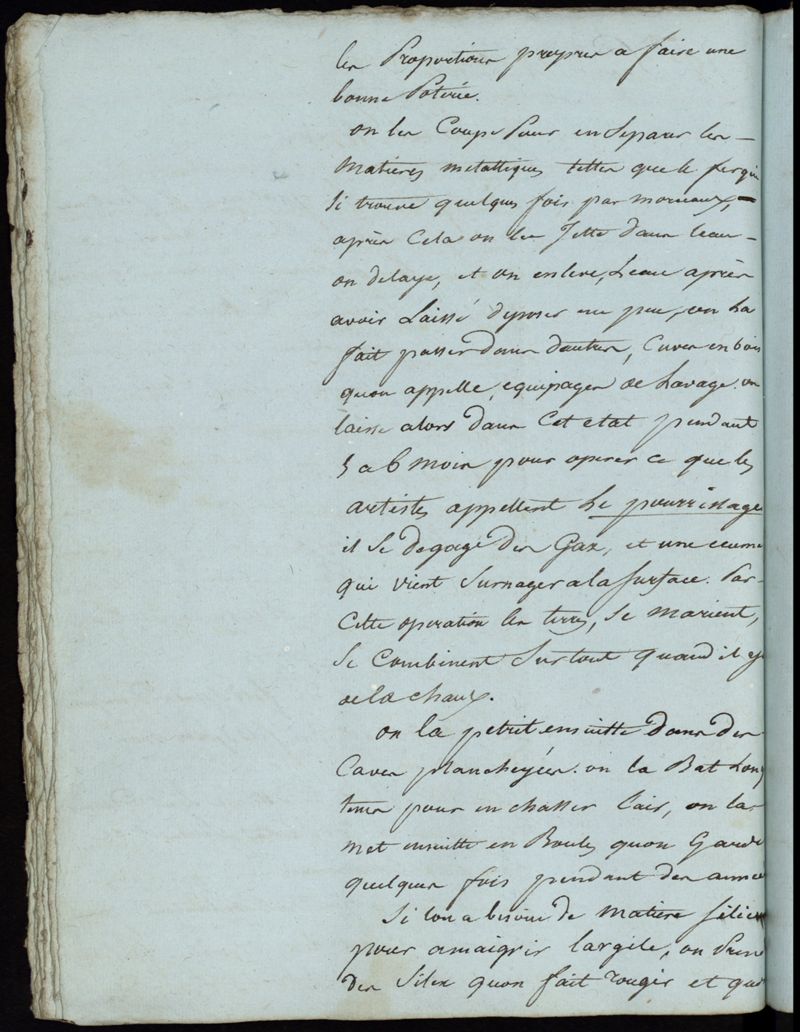 les Proportions propres a faire une
bonne Poterie.
on les Coupe Pour en Separer les
Matieres metalliques telles que le fer qui
Si trouve quelques fois par morceaux,
après Cela on les Jette dans leau
on delaye, et on enleve, Leau après
avoir Laissé deposer un peu, on La
fait passer dans dautres, Cuves en bois
quon appelle, equipages de Lavage. on
laisse alors dans Cet etat pendant
5 a 6 mois pour operer ce que les
artistes appellent Le pourrissage
il Se degage des Gax, et une ecume
qui vient Surnager a la Surface. Par
Cette operation les terres, Se marient,
Se Combinent Surtout quand il y
de la chaux.
on la petrit ensuitte dans des
Caves plancheyées. on la Bat Long
tems pour en chasser lair, on la
met ensuitte en Boules quon Garde
quelques fois pendant des année
Si lon a besoin de matiere Silice
pour amaigrir largile, on Prend
des Silex quon fait rougir et que